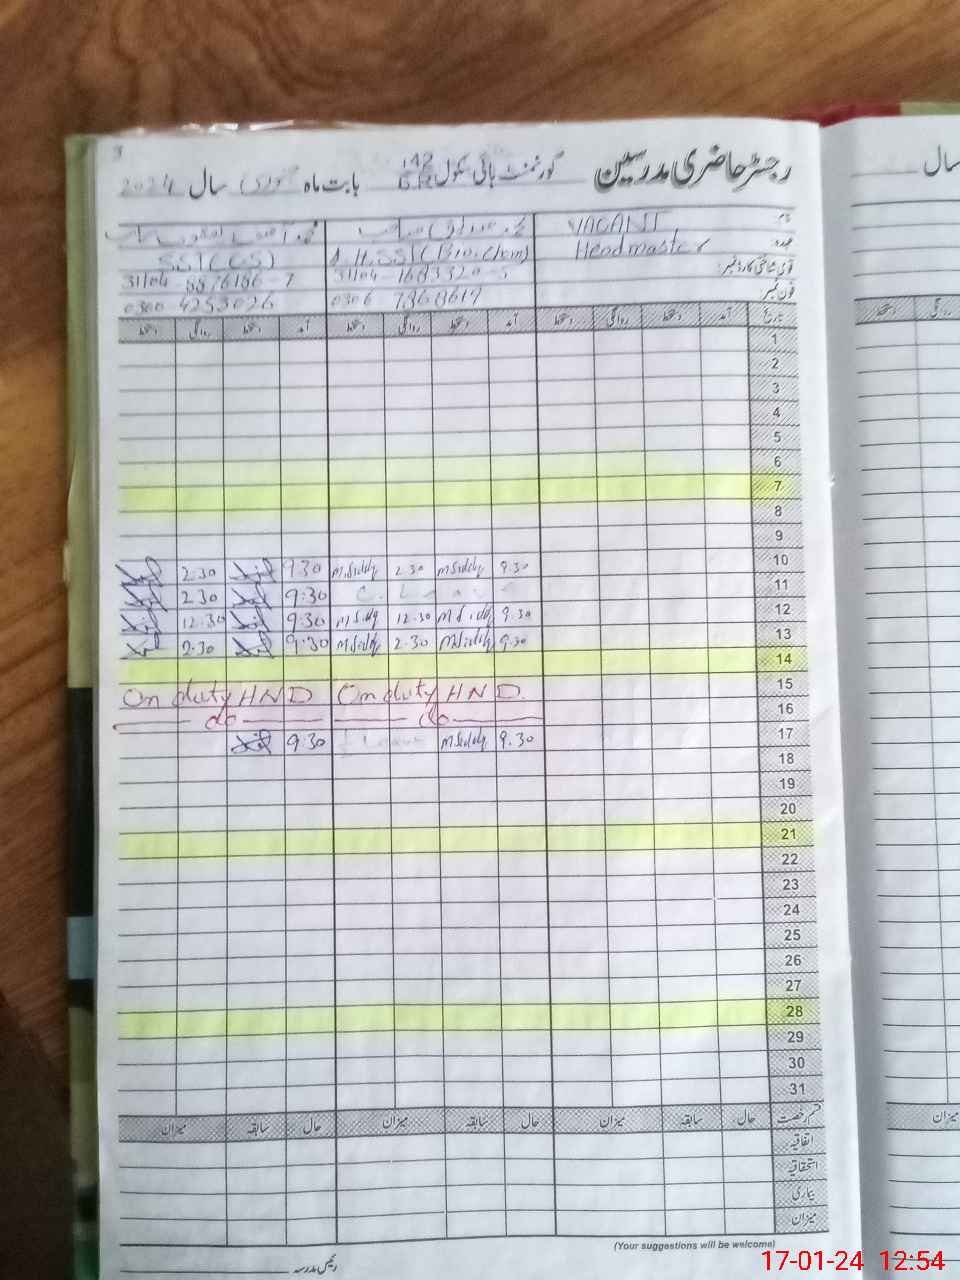 3
رجسٹر حاضری مدرسین گورنمنٹ ہائی سکول 142 بابت ماہ جنوری سال 2024
سال
نام VACANT محمد صدیق صاحب محمد آصف
عہدہ: Headmaster SST (Bio. Chem) SST (CS)
قومی شناختی کارڈ نمبر: 31104-1683320-5 31104
فون نمبر: 0306 0300 4253026
تاریخ آمد دستخط روانگی دستخط آمد دستخط روانگی دستخط آمد دستخط روانگی دستخط
دستخط
1
2
3
4
5
6
7
8
9
10 9.30 M Siddq 2.30 M.Siddq 9:30 2.30
11 C. Leave 9:30 2.30
12 9.30 M Siddq 12.30 M Siddq 9:30 12.30
13 9.30 M Siddq 2.30 M Siddq 9:30 2.30
14
15 On duty HND On duty HND
16 do do
17 9.30 M Siddq 9:30
18
19
20
21
22
23
24
25
26
27
28
29
30
31
قسم رخصت حال سابقہ میزان حال سابقہ میزان حال سابقہ میزان
اتفاقیہ
استحقاقیہ
بیماری
میزان
(Your suggestions will be welcome)
رئیس مدرسہ
17-01-24 12:54